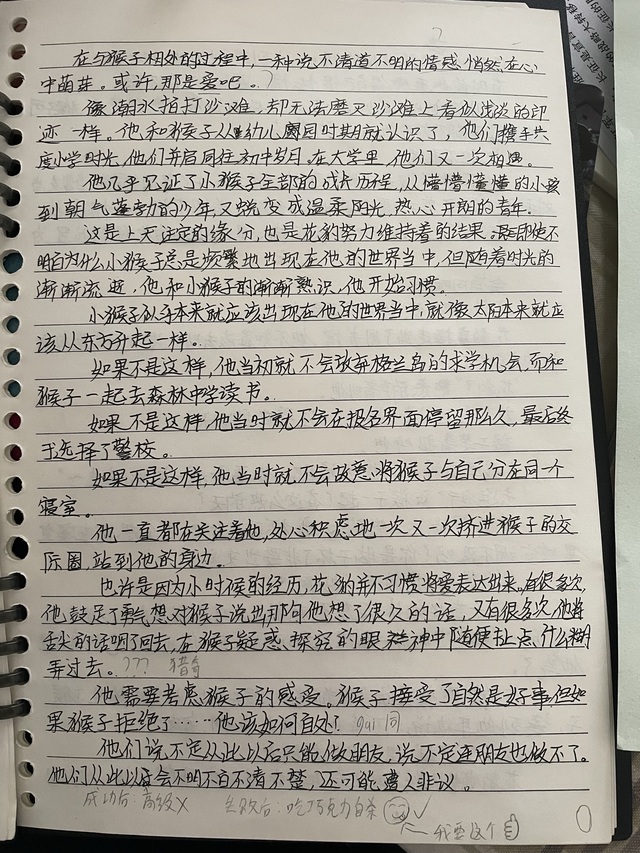 在与猴子相处的过程中,一种说不清道不明的情感悄然在心
中萌芽。或许,那是爱吧。?
像潮水拍打沙滩,却无法磨灭沙滩上看似浅淡的印
迹一样。他和猴子从幼儿园时期就认识了,他们携手共
度小学时光,他们并肩同往初中岁月。在大学里,他们又一次相遇。
他几乎见证了小猴子全部的成长历程,从懵懵懂懂的小孩
到朝气蓬勃的少年,又蜕变成温柔阳光,热心开朗的青年。
这是上天注定的缘分,也是花豹努力维持着的结果。即使不
明白为什么小猴子总是频繁地出现在他的世界当中,但随着时光的
渐渐流逝,他和小猴子的渐渐熟识,他开始习惯。
小猴子似乎本来就应该出现在他的世界当中,就像太阳本来就应
该从东方升起一样。
如果不是这样,他当初就不会放弃格兰岛的求学机会,而和
猴子一起去森林中学读书。
如果不是这样,他当时就不会在报名界面停留那么久,最后终
于选择了警校。
如果不是这样,他当时就不会故意将猴子与自己分在同一个
寝室。
他一直都在关注着他,处心积虑地一次又一次挤进猴子的交
际圈,站到他的身边。
也许是因为小时候的经历,花豹并不习惯将爱表达出来。有很多次,
他鼓足了勇气想对猴子说出那句他想了很久的话,又有很多次,他将
舌尖的话咽了回去,在猴子疑惑、探究的眼神中随便扯点什么糊
弄过去。??? 猎奇
他需要考虑猴子的感受。猴子接受了自然是好事,但如
果猴子拒绝了……他该如何自处? gui 同
他们说不定从此以后只能做朋友,说不定连朋友也做不了。
他们从此以后会不明不白不清不楚,还可能遭人非议。
成功后:高级× 失败后:吃巧克力自杀 ✓
我要这个